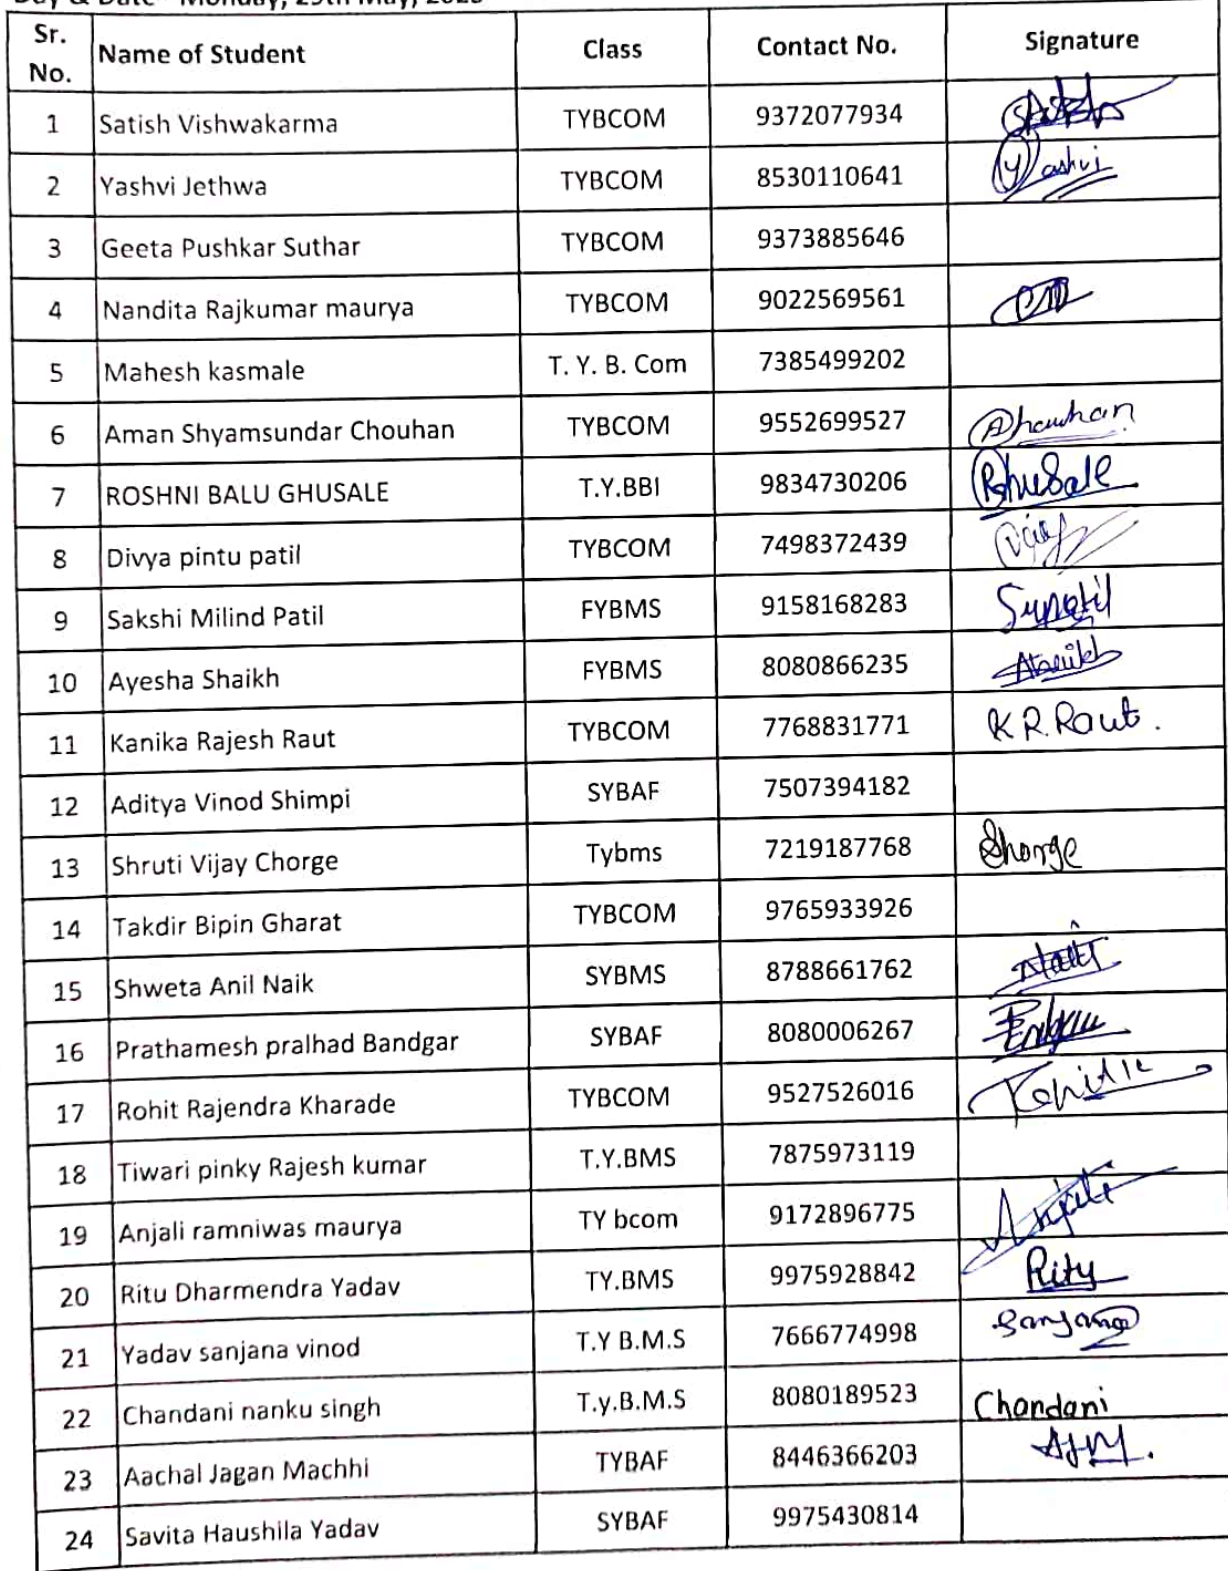 Day & Date - Monday, 29th May, 2023
Sr. No. Name of Student Class Contact No. Signature
1 Satish Vishwakarma TYBCOM 9372077934
2 Yashvi Jethwa TYBCOM 8530110641 Yashvi
3 Geeta Pushkar Suthar TYBCOM 9373885646
4 Nandita Rajkumar maurya TYBCOM 9022569561
5 Mahesh kasmale T. Y. B. Com 7385499202
6 Aman Shyamsundar Chouhan TYBCOM 9552699527
7 ROSHNI BALU GHUSALE T.Y.BBI 9834730206
8 Divya pintu patil TYBCOM 7498372439
9 Sakshi Milind Patil FYBMS 9158168283
10 Ayesha Shaikh FYBMS 8080866235
11 Kanika Rajesh Raut TYBCOM 7768831771 K R. Raut.
12 Aditya Vinod Shimpi SYBAF 7507394182
13 Shruti Vijay Chorge Tybms 7219187768 Shorge
14 Takdir Bipin Gharat TYBCOM 9765933926
15 Shweta Anil Naik SYBMS 8788661762
16 Prathamesh pralhad Bandgar SYBAF 8080006267
17 Rohit Rajendra Kharade TYBCOM 9527526016
18 Tiwari pinky Rajesh kumar T.Y.BMS 7875973119
19 Anjali ramniwas maurya TY bcom 9172896775 Anjali
20 Ritu Dharmendra Yadav TY.BMS 9975928842 Ritu
21 Yadav sanjana vinod T.Y B.M.S 7666774998 Sanjana
22 Chandani nanku singh T.y.B.M.S 8080189523 Chandani
23 Aachal Jagan Machhi TYBAF 8446366203 AJM.
24 Savita Haushila Yadav SYBAF 9975430814